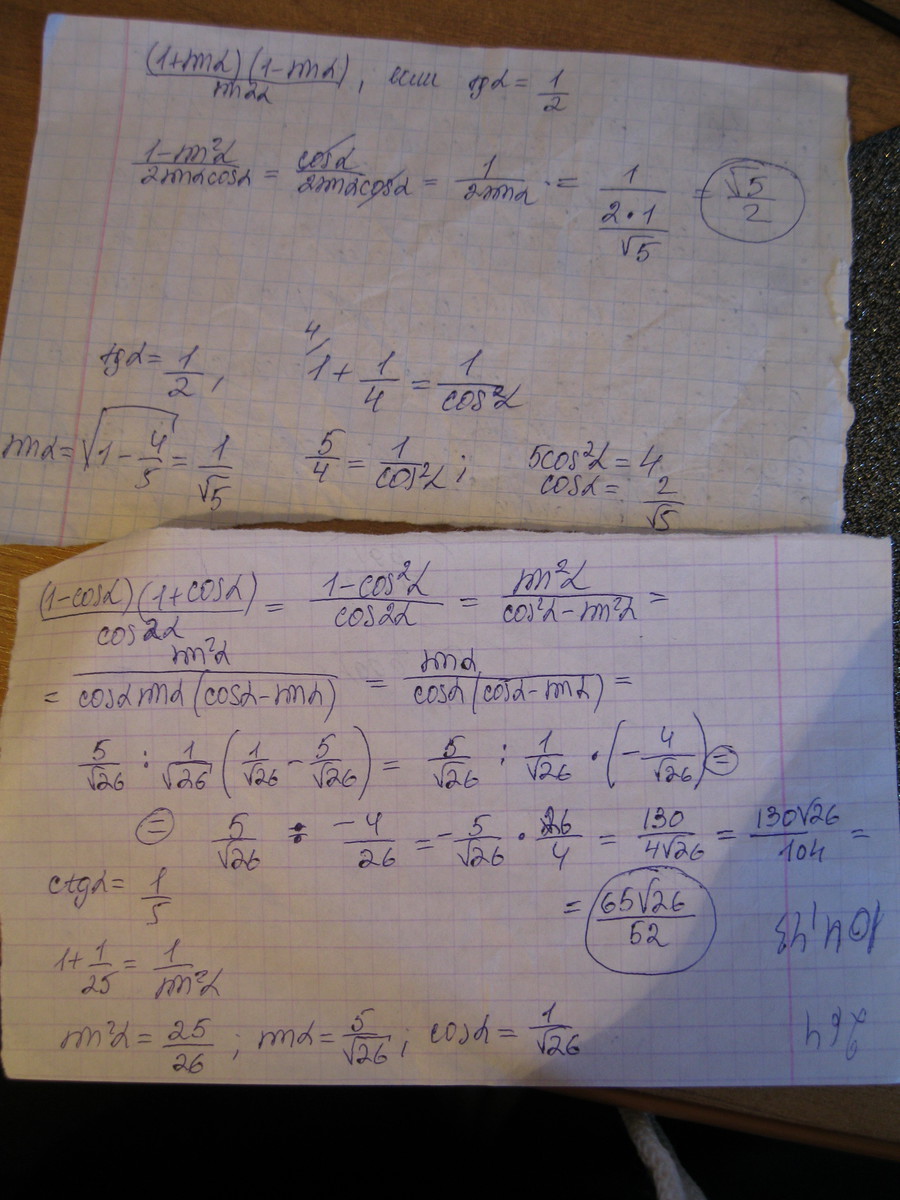 (1+sinα)(1-sinα)/sin2α, если tgα = 1/2
1-sin²α/2sinαcosα = cosα/2sinαcosα = 1/2sinα · = 1/(2·1/√5) = √5/2
tgα = 1/2, 4/ 1 + 1/4 = 1/cos²α
sinα = √(1 - 4/5) = 1/√5 5/4 = 1/cos²α; 5cos²α = 4
cosα = 2/√5
(1-cosα)(1+cosα)/cos2α = 1-cos²α/cos2α = sin²α/cos²α-sin²α =
= sin²α/cosα sinα(cosα-sinα) = sinα/cosα(cosα-sinα) =
5/√26 : 1/√26 (1/√26 - 5/√26) = 5/√26 : 1/√26 · (-4/√26) =
= 5/√26 : -4/26 = -5/√26 · 26/4 = 130/4√26 = 130√26/104 =
ctgα = 1/5 = 65√26/52
1 + 1/25 = 1/sin²α
sin²α = 25/26; sinα = 5/√26; cosα = 1/√26